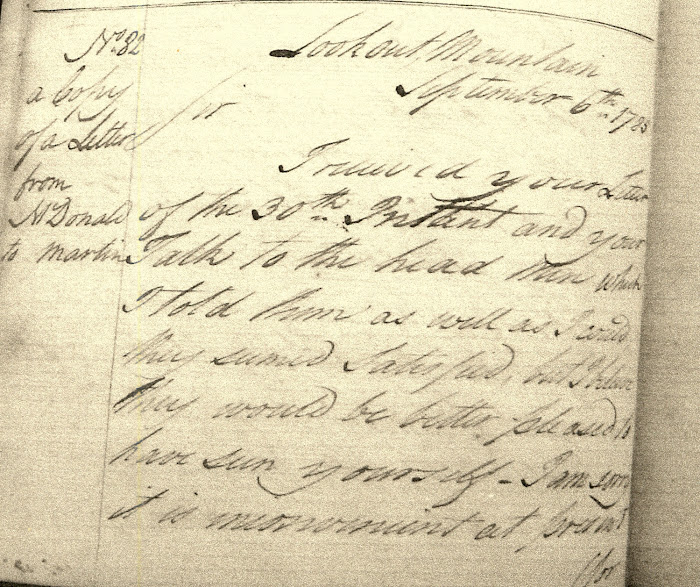 No. 82
a Copy
of a Letter
from
McDonald
to Martin
Lookout Mountain
September 6th 1785
Sir
I received your Letter
of the 30th Instant and your
Talk to the head men which
I told them as well as I could
they seemed Satisfied, but I believe
they would be better pleased to
have seen yourself - I am sorry
it is inconvenient at present
for